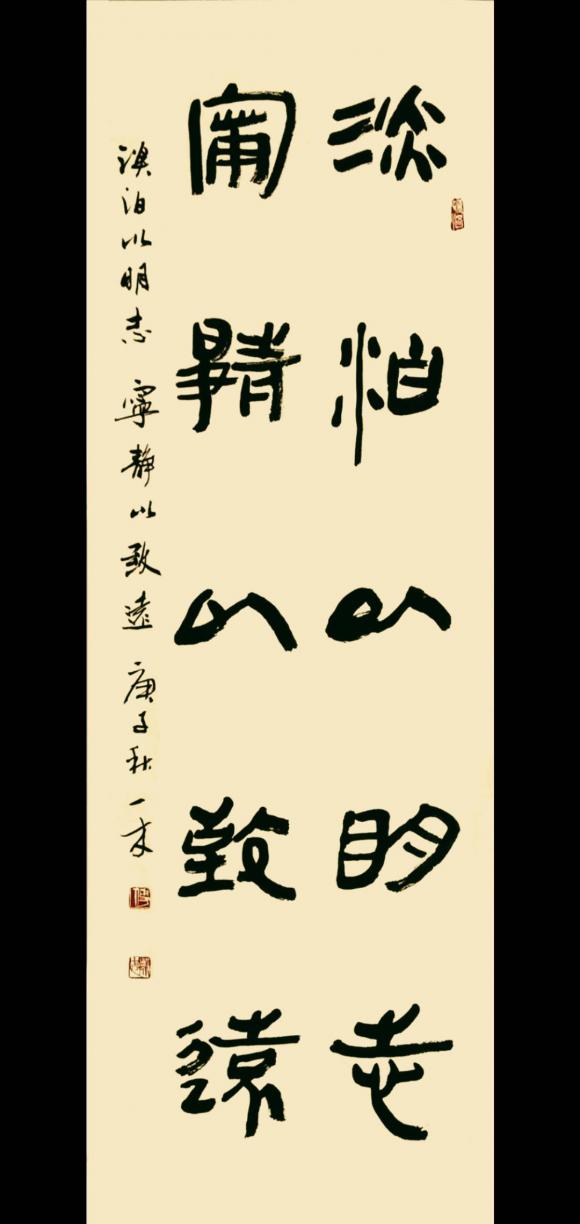 淡泊以明志
寧靜以致遠
淡泊以明志 寧靜以致遠 庚子秋 一禾